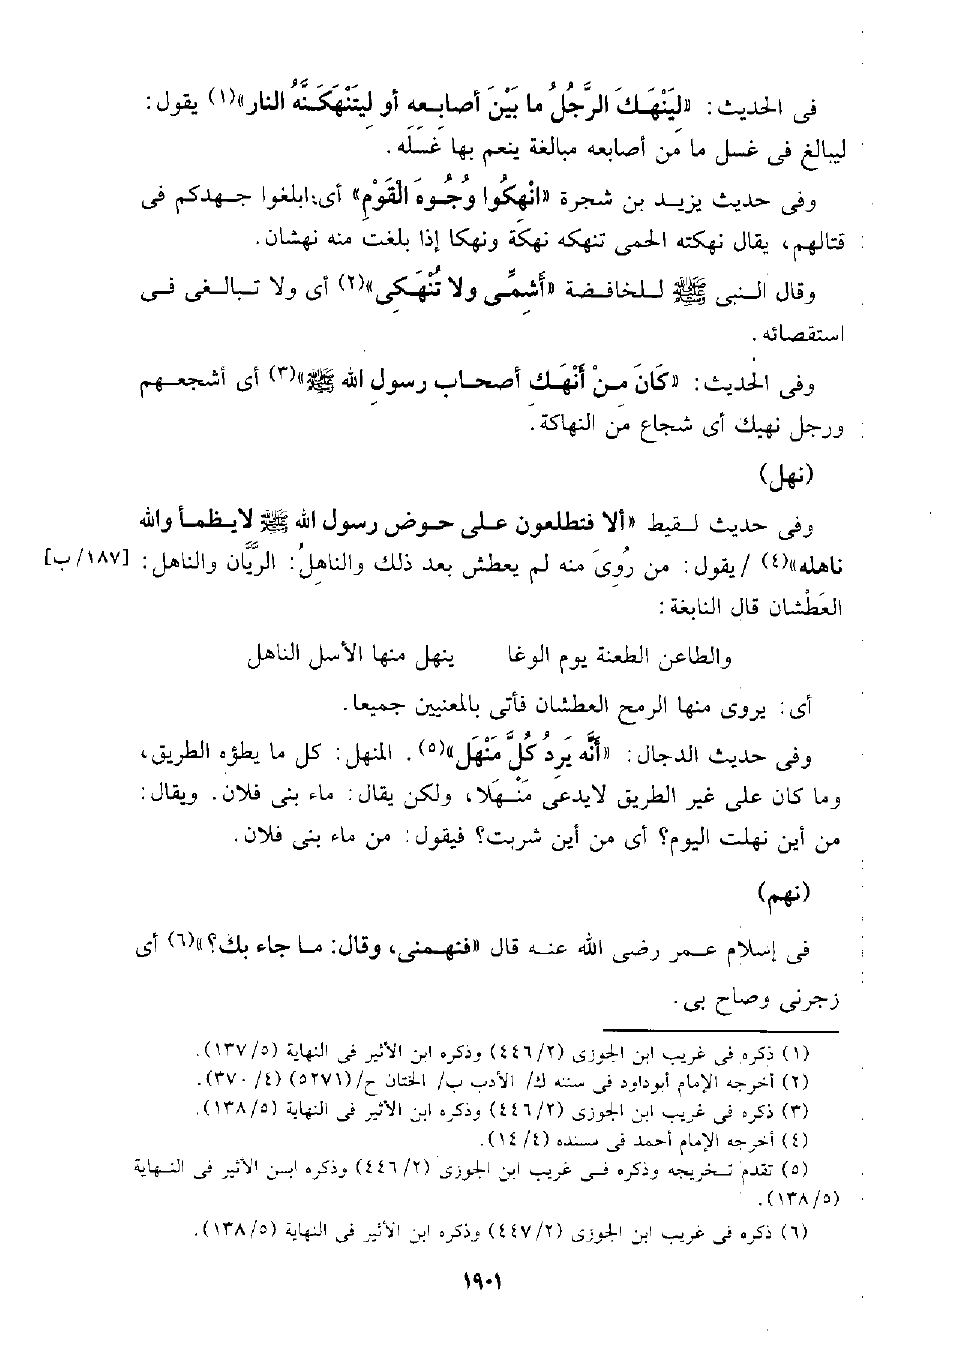 فى الحديث: «لِيَنْهَكَ الرَّجُلُ ما بَيْنَ أصابعه أو ليَنْهَكَنَّهُ النار»(١) يقول:
ليبالغ فى غسل ما من أصابعه مبالغة ينعم بها غسله.
وفى حديث يزيد بن شجرة «انْهِكُوا وُجُوهَ الْقَوْمِ» أى: ابلغوا جهدكم فى
قتالهم، يقال نهكته الحمى تنهكه نهكة ونهكا إذا بلغت منه نهشان.
وقال النبى ﷺ للخافضة «أَشمِّى ولا تُنْهَكِى»(٢) أى ولا تبالغى فى
استقصائه.
وفى الحديث: «كَانَ مِنْ أَنْهَكِ أصحاب رسول الله ﷺ»(٣) أى أشجعهم
ورجل نهيك أى شجاع من النهاكة.
(نهل)
وفى حديث لقيط «ألا فتطلعون على حوض رسول الله ﷺ لايظمأ والله
ناهله»(٤) /يقول: من رُوِىَ منه لم يعطش بعد ذلك والناهلُ: الريَّان والناهل: [١٨٧/ب]
العَطْشان قال النابغة:
والطاعن الطعنة يوم الوغا ينهل منها الأسل الناهل
أى: يروى منها الرمح العطشان فأتى بالمعنيين جميعا.
وفى حديث الدجال: «أنَّه يَرِدُ كُلَّ مَنْهَل»(٥). المنهل: كل ما يطؤه الطريق،
وما كان على غير الطريق لايدعى مَنْهَلا، ولكن يقال: ماء بنى فلان. ويقال:
من أين نهلت اليوم؟ أى من أين شربت؟ فيقول: من ماء بنى فلان.
(نهم)
فى إسلام عمر رضى الله عنه قال «فنهمنى، وقال: ما جاء بك؟»(٦) أى
زجرنى وصاح بى.
(١) ذكره فى غريب ابن الجوزى (٤٤٦/٢) وذكره ابن الأثير فى النهاية (١٣٧/٥).
(٢) أخرجه الإمام أبوداود فى سننه ك/ الأدب ب/ الختان ح/(٥٢٧١) (٣٧٠/٤).
(٣) ذكره فى غريب ابن الجوزى (٤٤٦/٢) وذكره ابن الأثير فى النهاية (١٣٨/٥).
(٤) أخرجه الإمام أحمد فى مسنده (١٤/٤).
(٥) تقدم تخريجه وذكره فى غريب ابن الجوزى (٤٤٦/٢) وذكره ابن الأثير فى النهاية
(١٣٨/٥).
(٦) ذكره فى غريب ابن الجوزى (٤٤٧/٢) وذكره ابن الأثير فى النهاية (١٣٨/٥).
١٩٠١